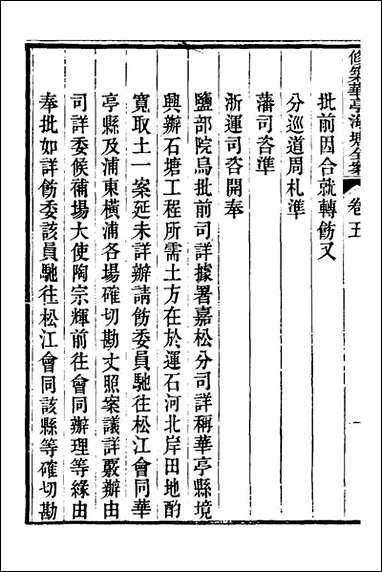 修築華亭海塘全案 卷五
批前因合就轉飭又
分巡道周札準
藩司咨準
浙運司咨開奉
鹽部院烏批前司詳據署嘉松分司詳稱華亭縣境
興辦石塘工程所需土方在於運石河北岸田地酌
寬取土一案延未詳辦請飭委員馳往松江會同華
亭縣及浦東橫浦各場確切勘丈照案議詳覈辦由
司詳委候補場大使陶宗輝前往會同辦理等緣由
奉批如詳飭委該員馳往松江會同該縣等確切勘